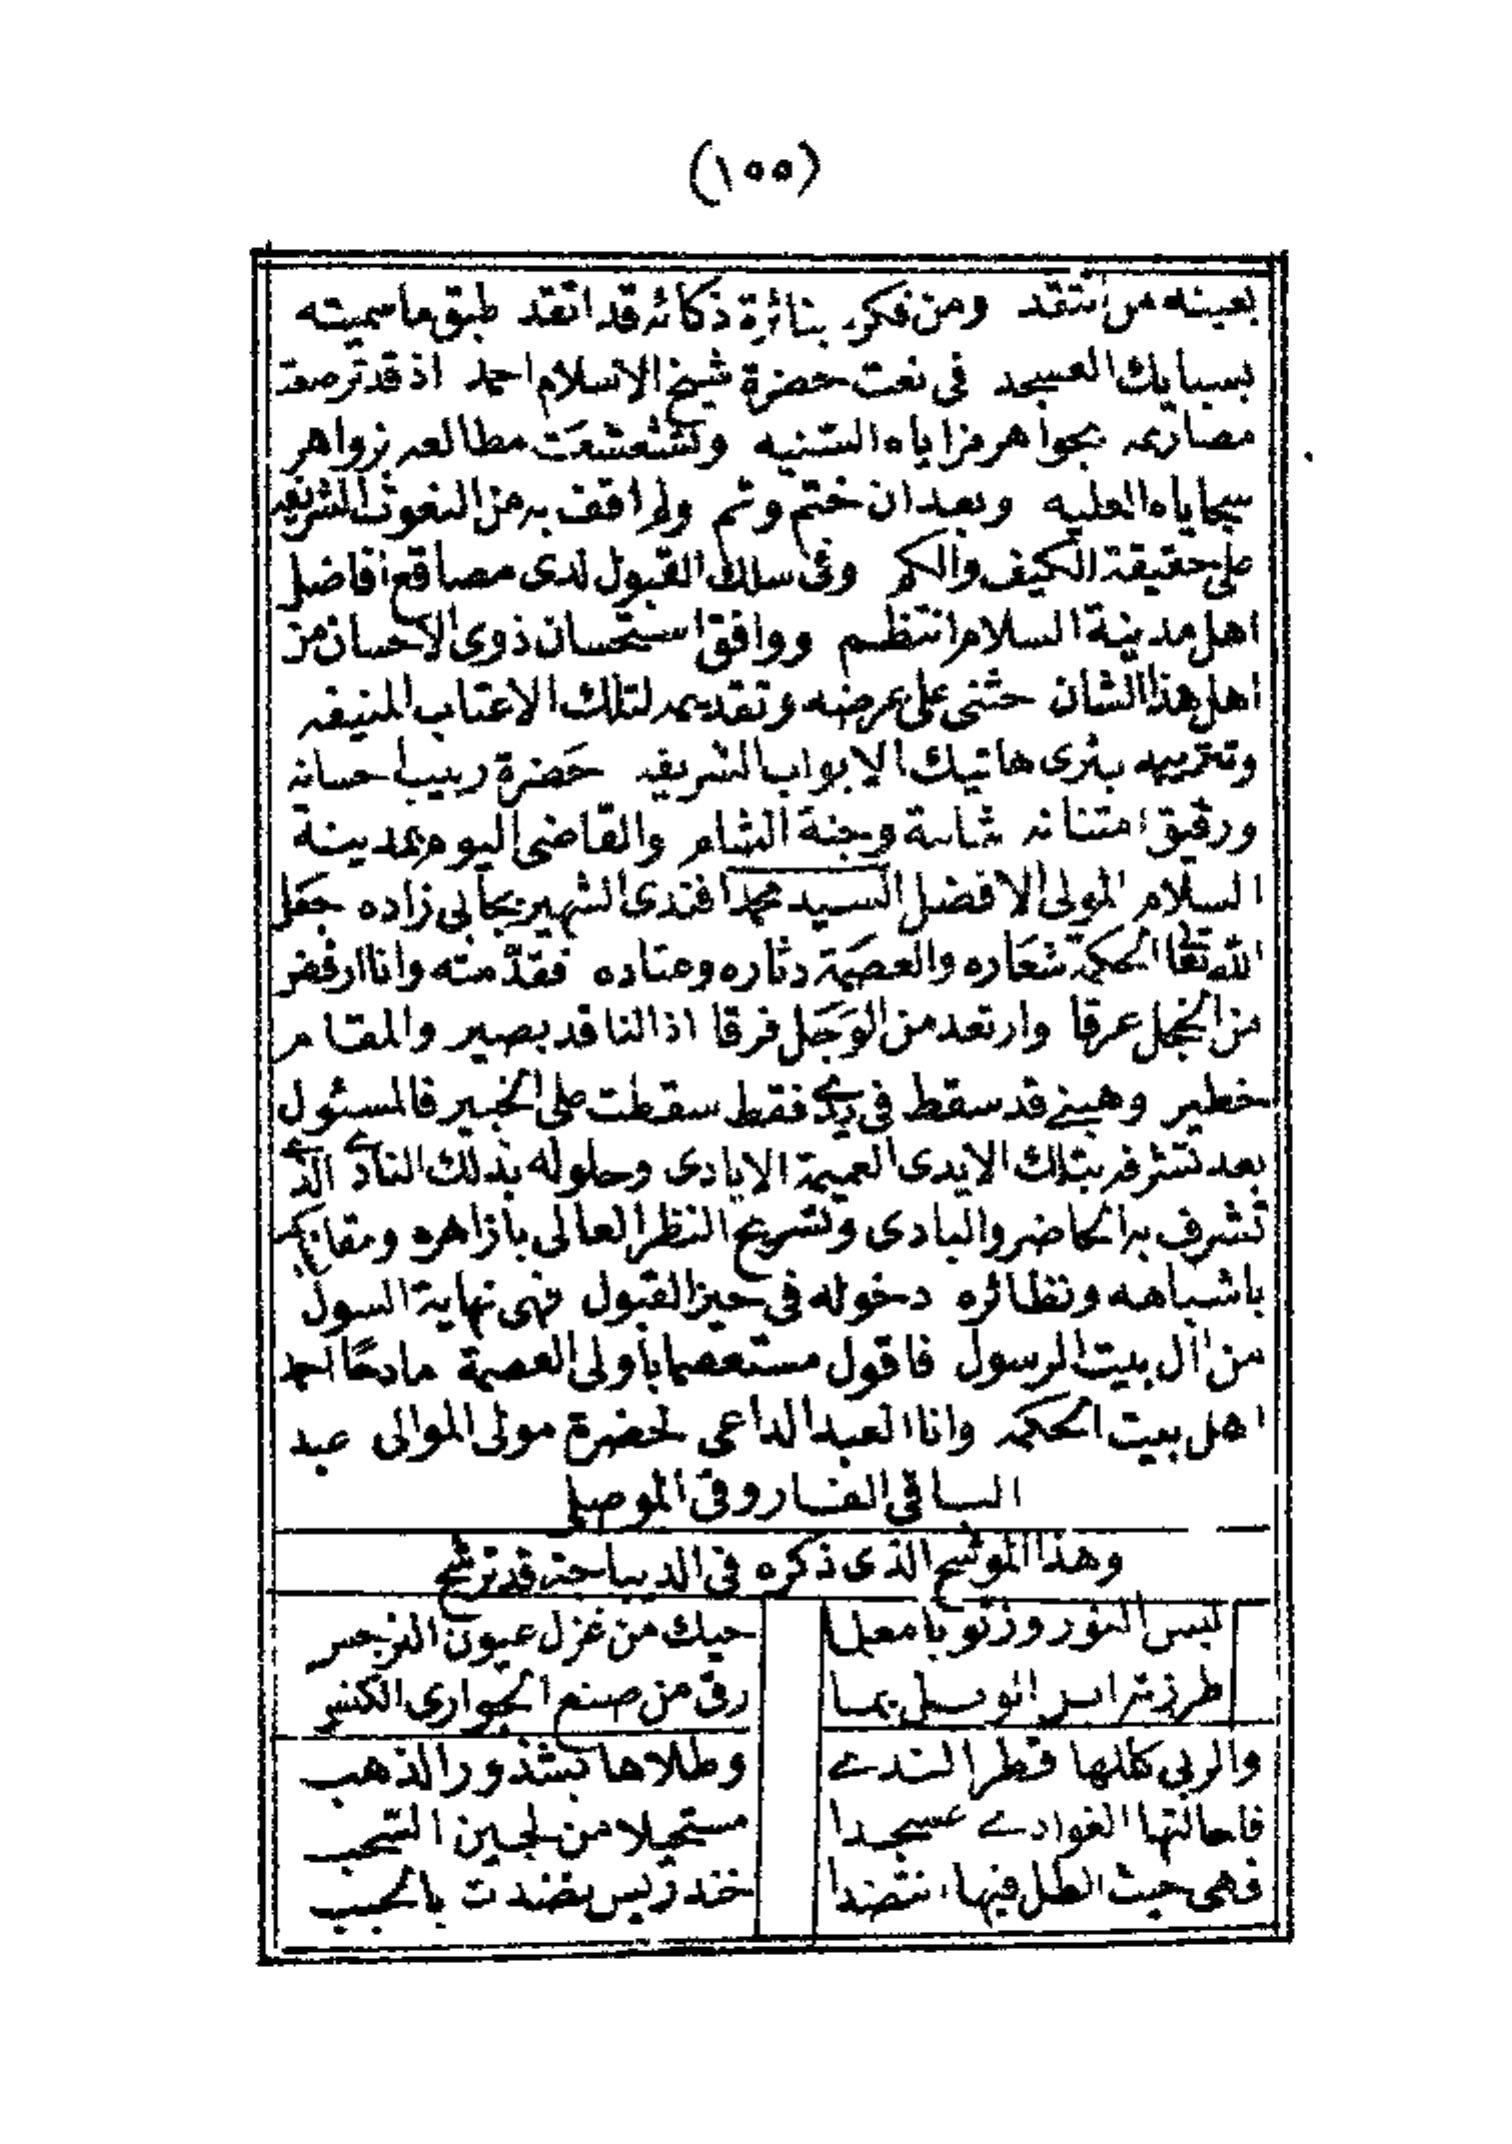 (١٥٥)
بعينه من انتقد ومن فكره بنائرة ذكائه قد اتقد طبق ما سميته
بسبايك العسجد فى نعت حضرة شيخ الاسلام احمد اذ قد ترصعت
مصاريعه بجواهر مزاياه السنيه وتشعشعت مطالعه بزواهر
سجاياه العليه وبعد ان ختم وتم ولم اقف به من النعوت الشريفه
على حقيقة الكيف والكم وفى سلك القبول لدى مصاقع افاضل
اهل مدينة السلام انتظم ووافق استحسان ذوى الاحسان من
اهل هذا الشان حثنى على عرضه وتقديمه لتلك الاعتاب المنيفه
وتتريبه بثرى هاتيك الابواب الشريفه حضرة ربيب احسانه
ورقيق امتنانه شامة وجنة الشام والقاضى اليوم بمدينة
السلام المولى الافضل السيد محمد افندى الشهير بجابى زاده جعل
الله تعالى الحكمة شعاره والعصمة دثاره وعتاده فقدمته وانا ارفض
من الخجل عرقا وارتعد من الوجل فرقا اذ الناقد بصير والمقام
خطير وهبنى قد سقط فى يدى فقط سقطت على الخبير فالمسئول
بعد تشرفه بتلك الايدى العميمة الايادى وحلوله بذلك النادى الذى
تشرف به الحاضر والبادى وتسريح النظر العالى بازاهره ومقابلته
باشباهه ونظائره دخوله فى حيز القبول فهى نهاية السول
من آل بيت الرسول فاقول مستعصما باولى العصمة مادحًا احمد
اهل بيت الحكمه وانا العبد الداعى لحضرة مولى الموالى عبد
الباقى الفاروقى الموصلى
وهذا الموشح الذى ذكره فى الديباجة قد ترشح
لبس النور وزنّوبا معلما حيك من غزل عيون النرجس
طرزته ابر الوبل بما رق من صنع الجوارى الكنس
والربى كللها قطر الندى وطلاها بشذور الذهب
فاحالتها الغوادى عسجدا مستحيلا من لجين السحب
فهى حيث الطل فيها انتضدا خندريس نضدت بالحبب